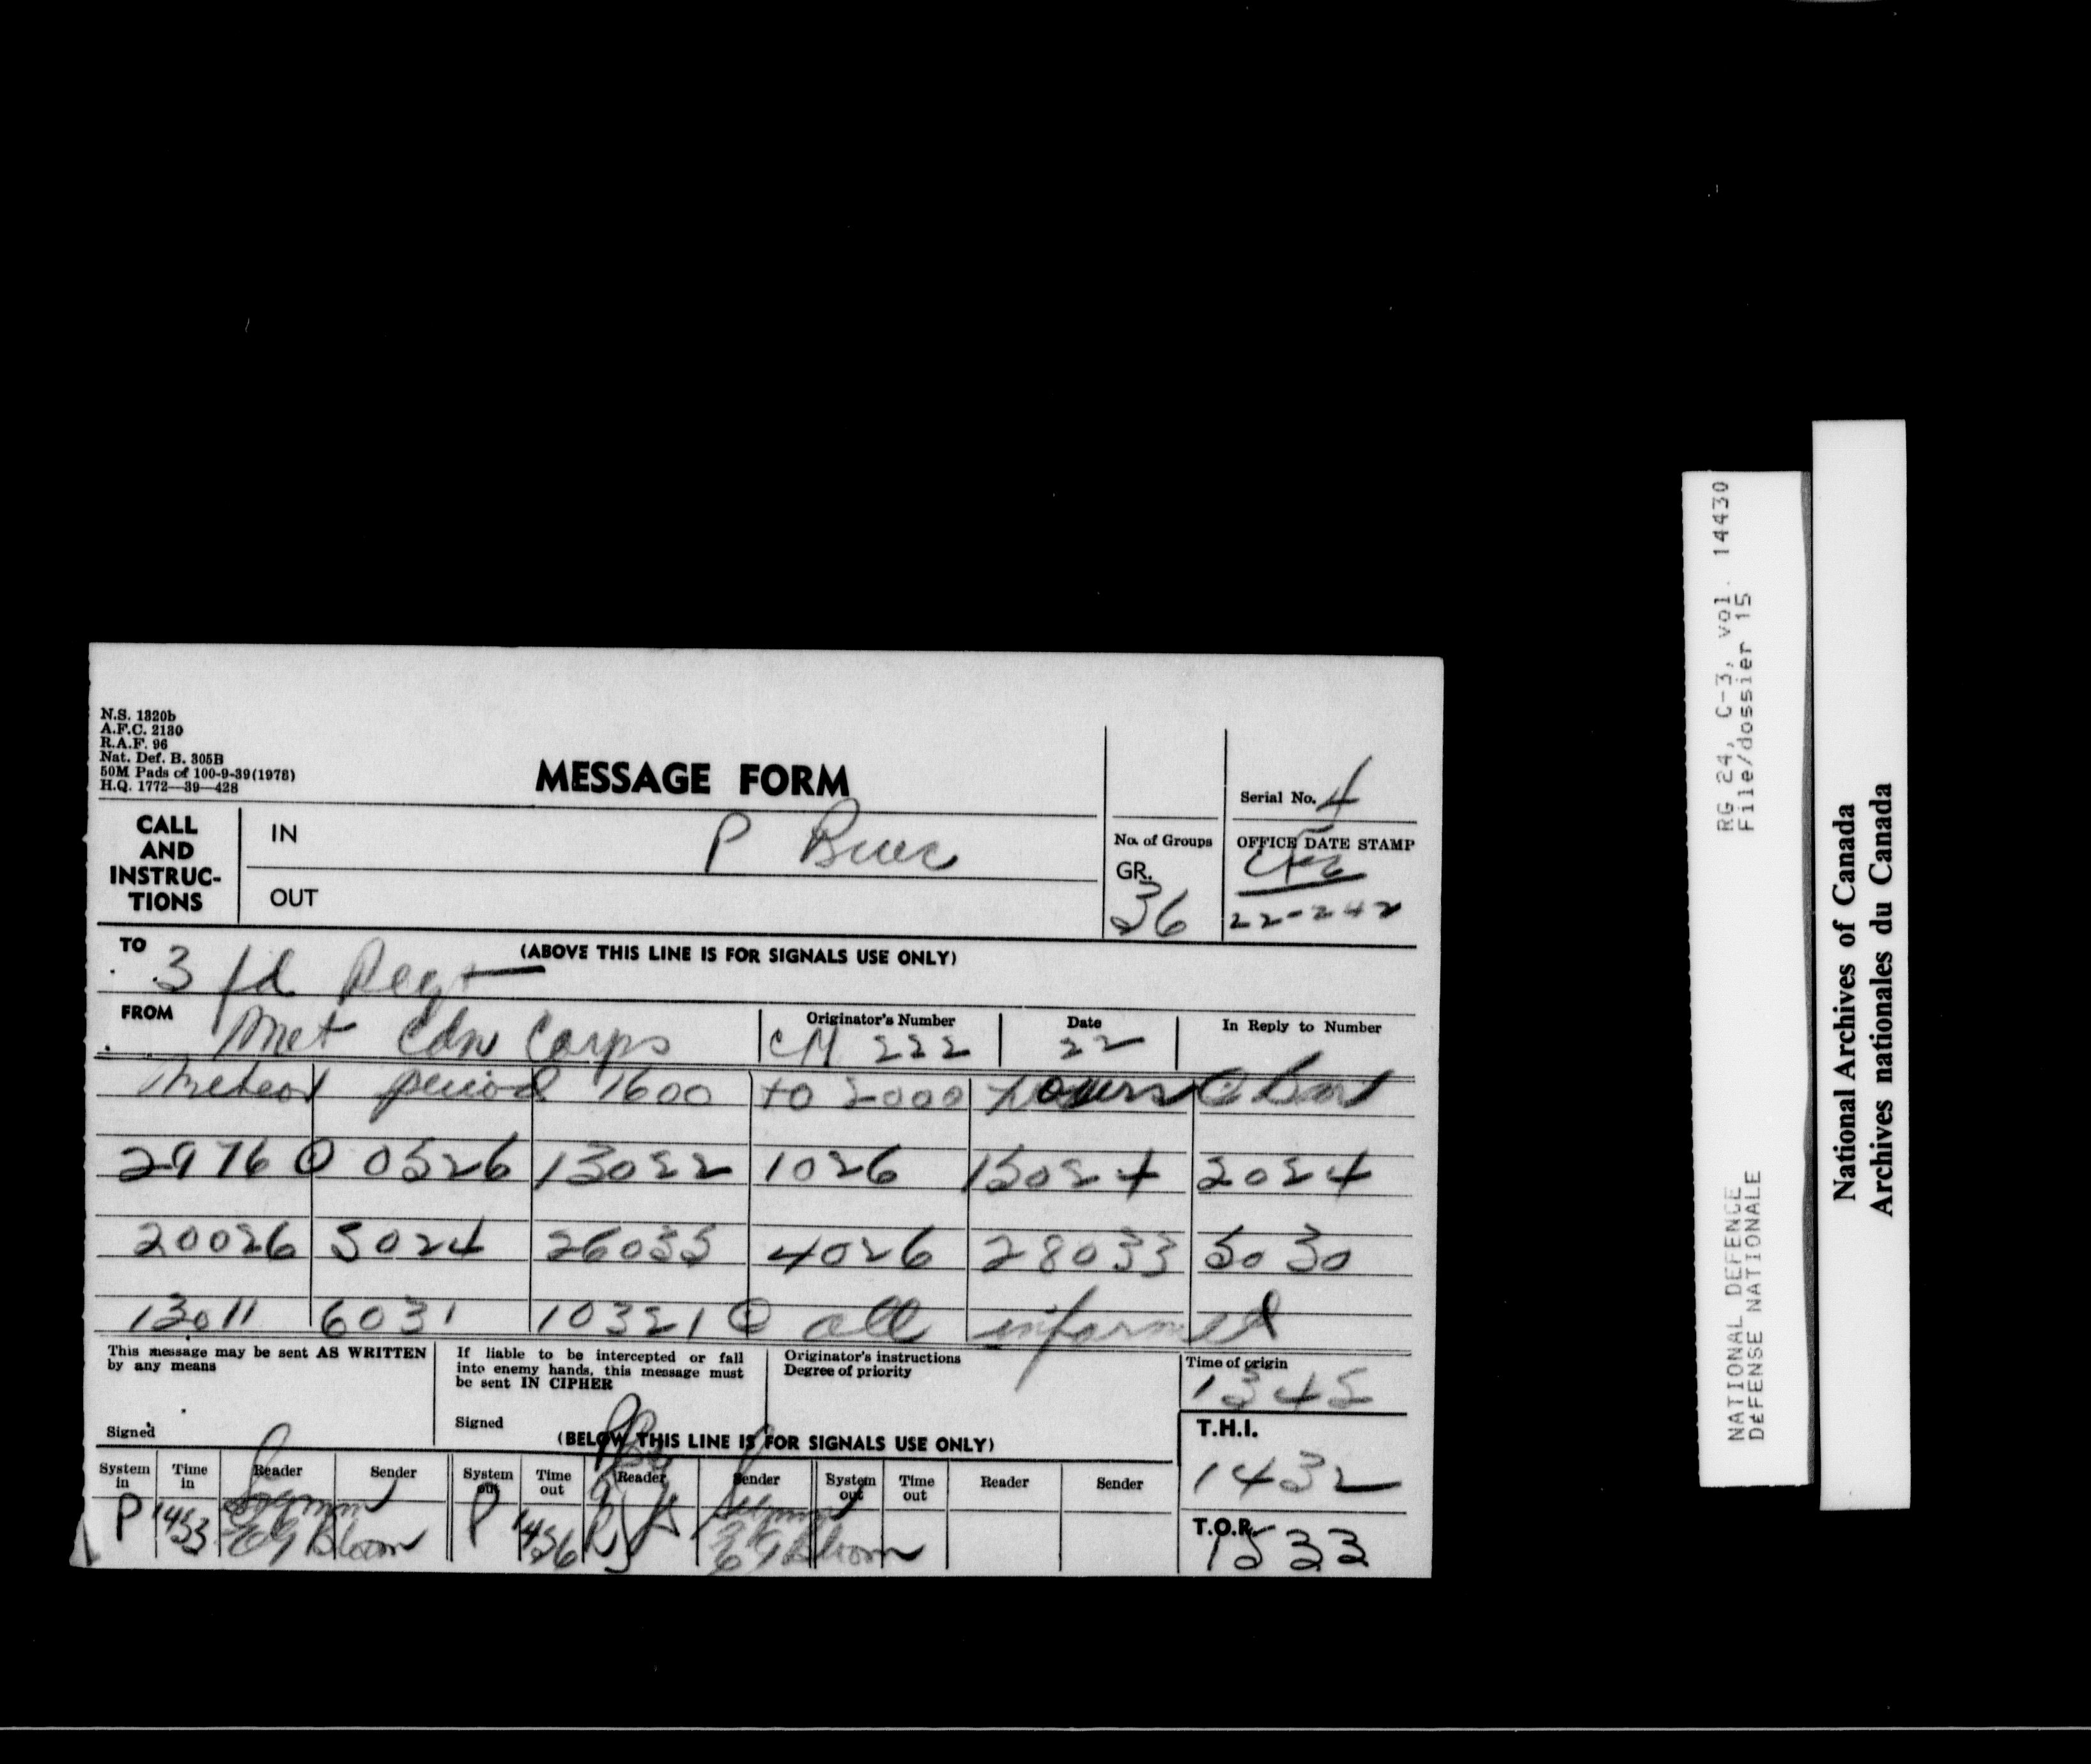 N.S. 1320b
A.F.C. 2130
R.A.F. 96
Nat. Def. B. 305B
50M Pads of 100-9-39(1978)
H.Q. 1772—39—428
MESSAGE FORM
Serial No. 4
CALL AND INSTRUC-TIONS
IN
P
OUT
No. of Groups
GR.
36
OFFICE DATE STAMP
22-2-42
TO
3 fd Regt
(ABOVE THIS LINE IS FOR SIGNALS USE ONLY)
FROM
Met Cdn Corps
Originator's Number
CM 222
Date
22
In Reply to Number
Meteor period 1600 to 2000 hours Bar
2976 0526 13022 1026 15024 2024
20026 3024 26033 4026 28033 5030
13011 6031 10321 all informed
This message may be sent AS WRITTEN by any means
Signed
If liable to be intercepted or fall into enemy hands, this message must be sent IN CIPHER
Signed
Originator's instructions
Degree of priority
Time of origin
1345
(BELOW THIS LINE IS FOR SIGNALS USE ONLY)
T.H.I.
1432
System in Time in Reader Sender System out Time out Reader Sender System out Time out Reader Sender
P 1433 Bloom P 1436 Bloom
T.O.R.
1533
RG 24, C-3, vol. 14430
File/dossier 15
NATIONAL DEFENCE
DEFENSE NATIONALE
National Archives of Canada
Archives nationales du Canada